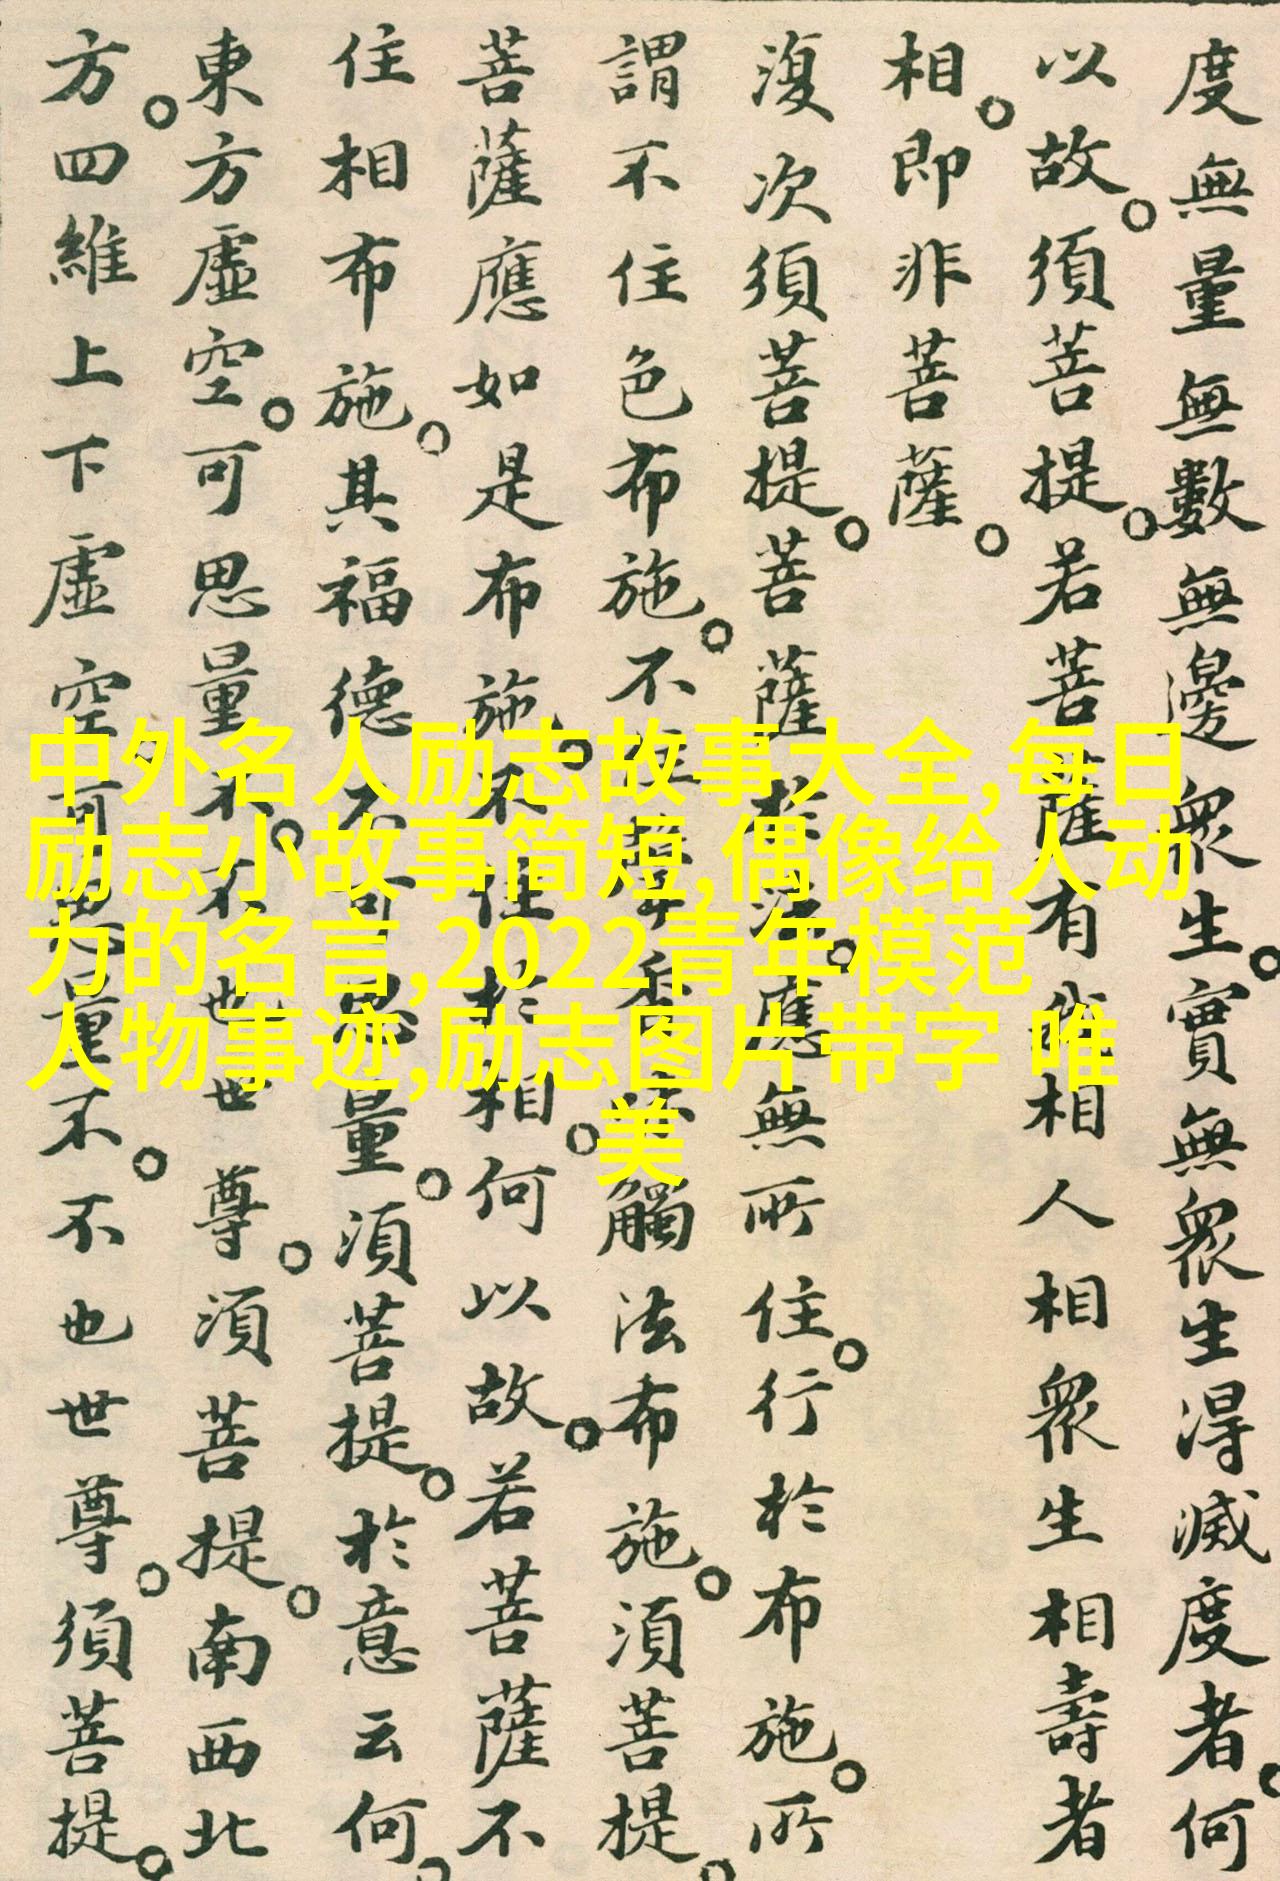 度無量無數無邊眾生。實無眾生得滅度者。何
以故。須菩提。若菩薩有我相人相眾生相壽者
相。即非菩薩。
復次須菩提。菩薩於法。應無所住。行於布施。所
謂不住色布施。不住聲香味觸法布施。須菩提。
菩薩應如是布施。不住於相。何以故。若菩薩不
住相布施。其福德不可思量。須菩提。於意云何。
東方虛空。可思量不。不也世尊。須菩提。南西北
方。四維上下虛空可思量不。不也世尊。須菩提。
中外名人励志故事大全,每日
励志小故事简短,偶像给人动
力的名言,2022青年模范
人物事迹,励志图片带字 唯
美